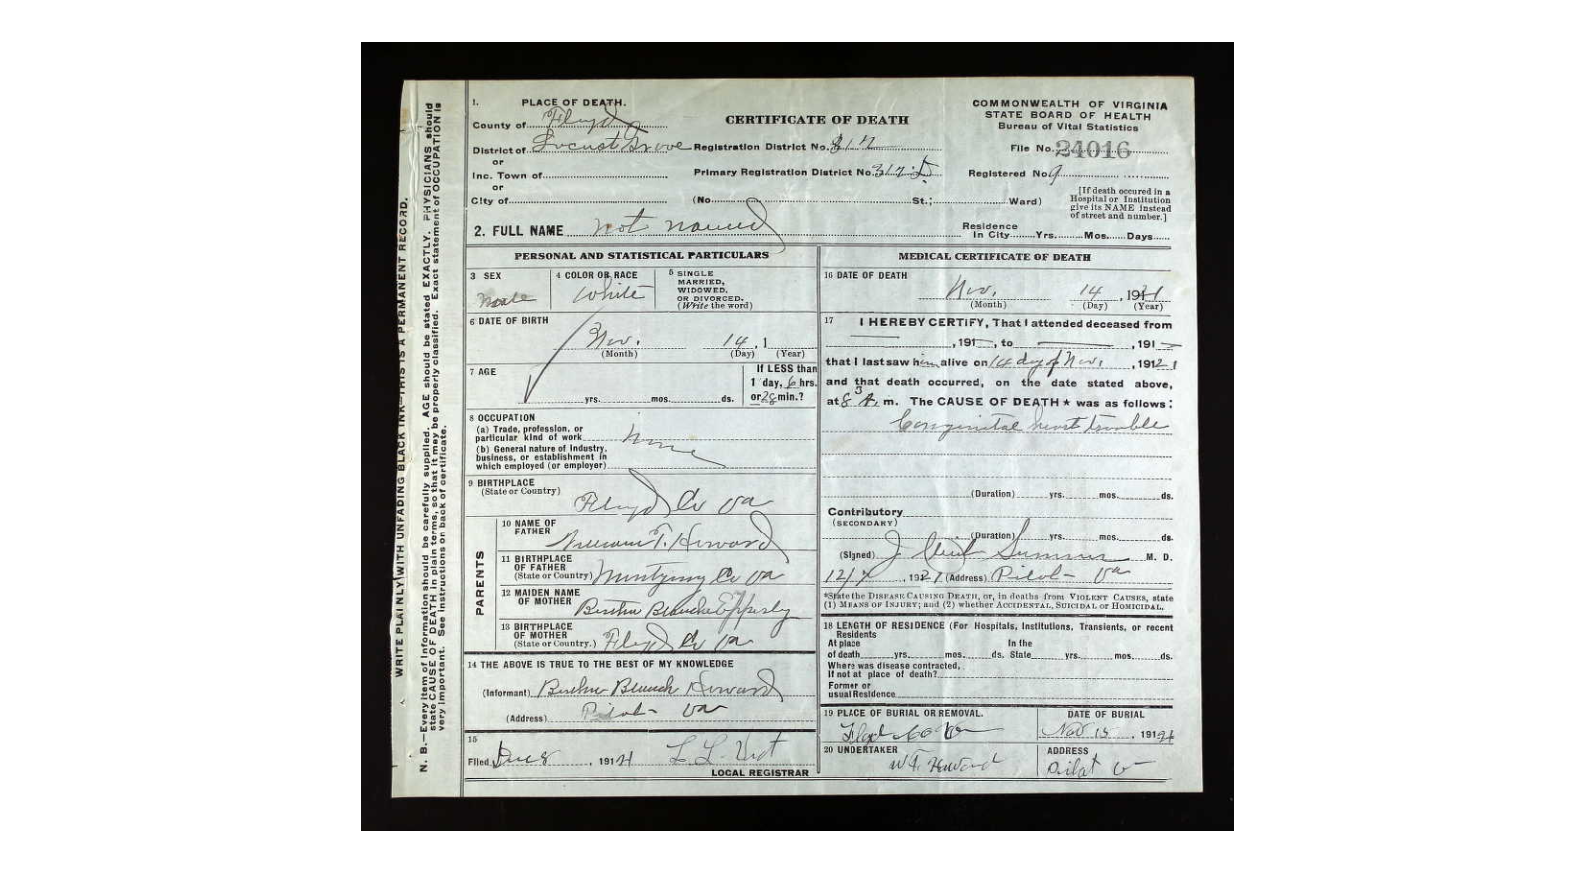 WRITE PLAINLY WITH UNFADING BLACK INK—THIS IS A PERMANENT RECORD.
N. B.—Every item of Information should be carefully supplied. AGE should be stated EXACTLY. PHYSICIANS should
state CAUSE OF DEATH in plain terms, so that it may be properly classified. Exact statement of OCCUPATION is
very important. See instructions on back of certificate.
1. PLACE OF DEATH.
County of Floyd
District of Locust Grove
or
Inc. Town of
or
City of
CERTIFICATE OF DEATH
Registration District No.
Primary Registration District No.
(No. St.; Ward)
COMMONWEALTH OF VIRGINIA
STATE BOARD OF HEALTH
Bureau of Vital Statistics
File No. 24016
Registered No. 9
[If death occured in a
Hospital or Institution
give its NAME instead
of street and number.]
2. FULL NAME not named
Residence
In City Yrs. Mos. Days
PERSONAL AND STATISTICAL PARTICULARS
3 SEX
male
4 COLOR OR RACE
White
5 SINGLE
MARRIED,
WIDOWED.
OR DIVORCED.
(Write the word)
6 DATE OF BIRTH
Nov. 14, 1
(Month) (Day) (Year)
7 AGE
yrs. mos. ds.
If LESS than
1 day, 6 hrs.
or 28 min.?
8 OCCUPATION
(a) Trade, profession, or
particular kind of work
(b) General nature of Industry,
business, or establishment in
which employed (or employer)
None
9 BIRTHPLACE
(State or Country)
Floyd Co Va
PARENTS
10 NAME OF
FATHER
William T. Howard
11 BIRTHPLACE
OF FATHER
(State or Country) Montgomy Co Va
12 MAIDEN NAME
OF MOTHER
Blanche Epperly
13 BIRTHPLACE
OF MOTHER
(State or Country.) Floyd Co Va
14 THE ABOVE IS TRUE TO THE BEST OF MY KNOWLEDGE
(Informant) Blanch Howard
(Address) Pilot Va
15
Filed 191
L. L.
LOCAL REGISTRAR
MEDICAL CERTIFICATE OF DEATH
16 DATE OF DEATH
Nov. 14, 1921
(Month) (Day) (Year)
17 I HEREBY CERTIFY, That I attended deceased from
, 191 , to , 191
that I last saw him alive on 14 day of Nov., 1921
and that death occurred, on the date stated above,
at 8 m. The CAUSE OF DEATH ★ was as follows:
Congenital heart trouble
(Duration) yrs. mos. ds.
Contributory
(SECONDARY)
(Duration) yrs. mos. ds.
(Signed) J M. D.
, 1921 (Address) Pilot Va
*State the DISEASE CAUSING DEATH, or, in deaths from VIOLENT CAUSES, state
(1) MEANS OF INJURY; and (2) whether ACCIDENTAL, SUICIDAL or HOMICIDAL.
18 LENGTH OF RESIDENCE (For Hospitals, Institutions, Transients, or recent
Residents
At place In the
of death yrs. mos. ds. State yrs. mos. ds.
Where was disease contracted,
If not at place of death?
Former or
usual Residence
19 PLACE OF BURIAL OR REMOVAL.
Floyd Co Va
DATE OF BURIAL
Nov 15, 1921
20 UNDERTAKER
W T. Howard
ADDRESS
Pilot Va